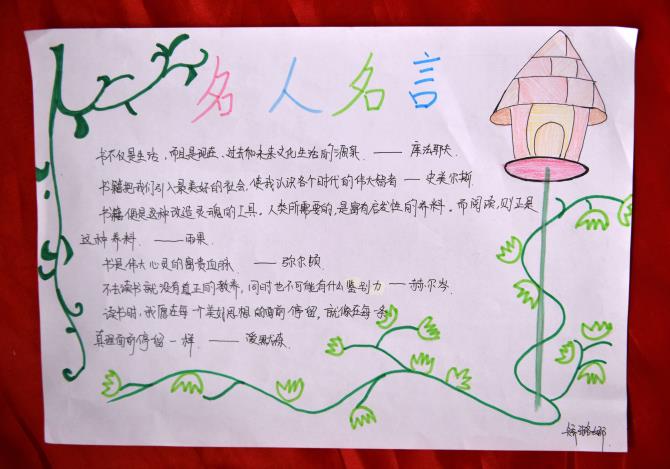 名人名言
书不仅是生活，而且是现在、过去和未来文化生活的源泉. —— 库法耶夫.
书籍把我们引入最美好的社会,使我认识各个时代的伟大智者 —— 史美尔斯.
书籍便是这种改造灵魂的工具。人类所需要的,是富有启发性的养料。而阅读,则正是
这种养料. ——雨果.
书是伟大心灵的富贵血脉. —— 弥尔顿
不去读书就没有真正的教养,同时也不可能有什么鉴别力 —— 赫尔岑.
读书时,我愿在每一个美好思想的面前停留,就像在每一条
真理面前停留一样. —— 爱默生